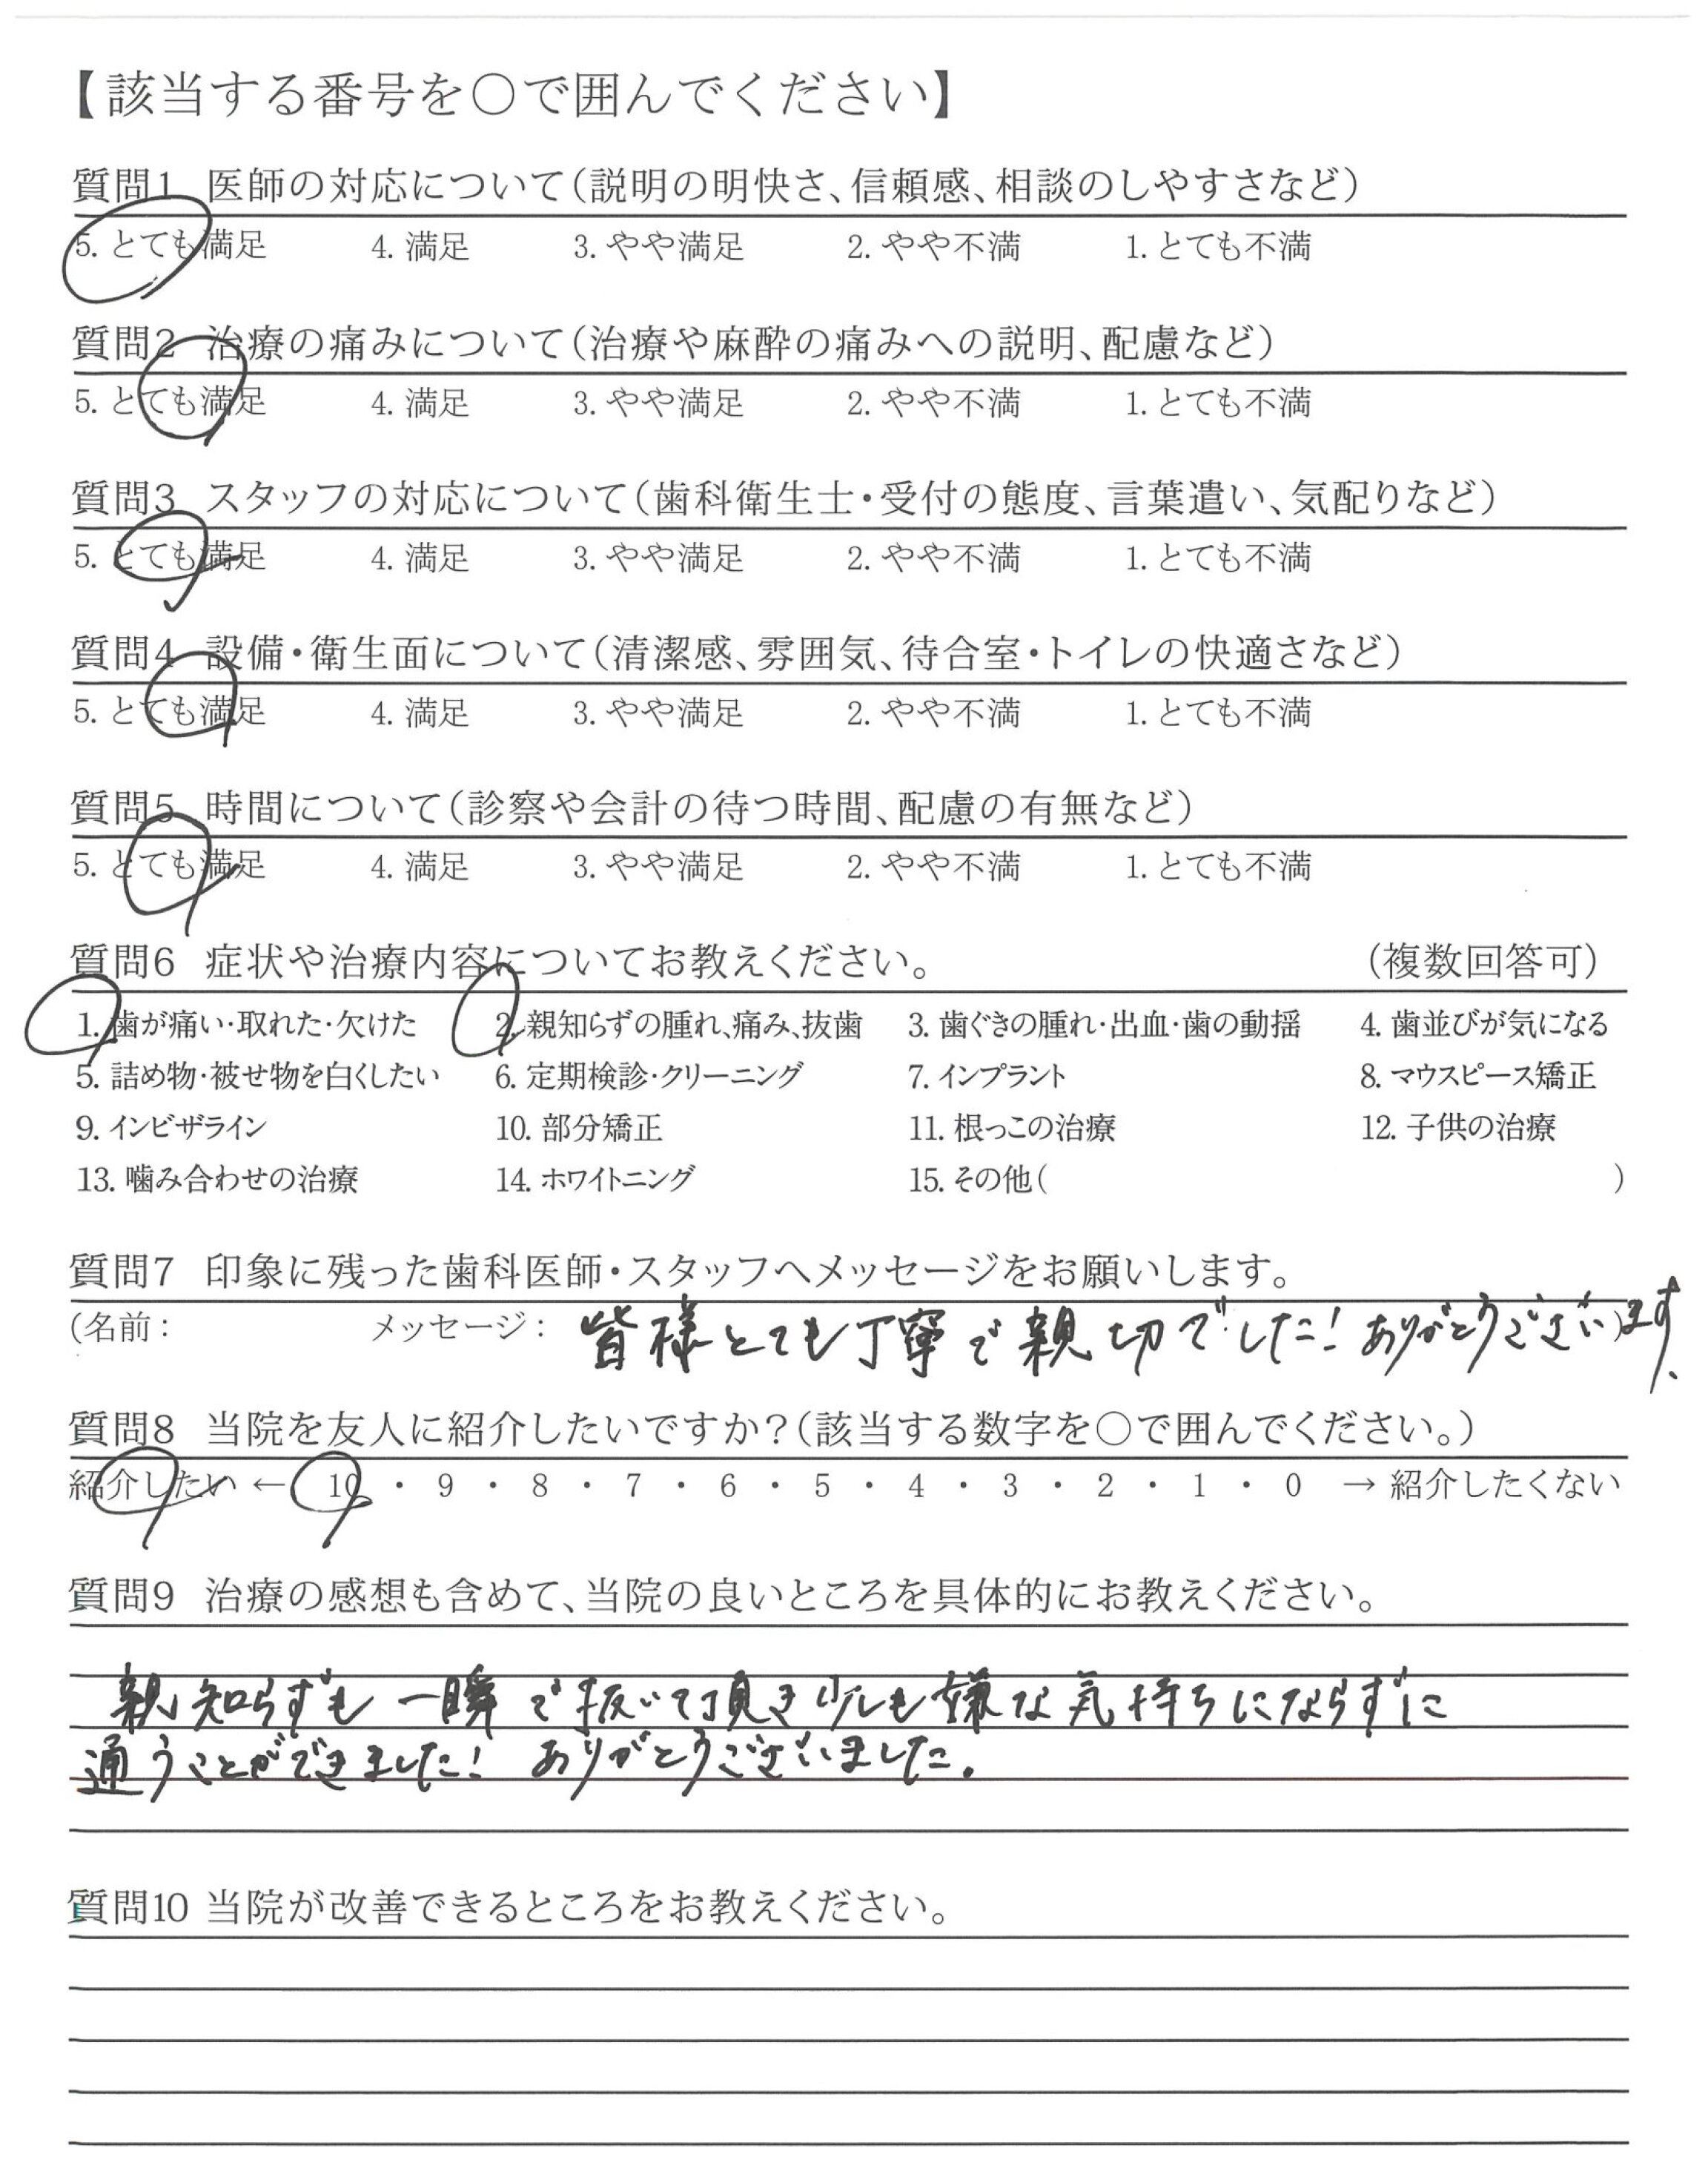 【該当する番号を○で囲んでください】
質問1 医師の対応について(説明の明快さ、信頼感、相談のしやすさなど)
5. とても満足 4. 満足 3. やや満足 2. やや不満 1. とても不満
質問2 治療の痛みについて(治療や麻酔の痛みへの説明、配慮など)
5. とても満足 4. 満足 3. やや満足 2. やや不満 1. とても不満
質問3 スタッフの対応について(歯科衛生士・受付の態度、言葉遣い、気配りなど)
5. とても満足 4. 満足 3. やや満足 2. やや不満 1. とても不満
質問4 設備・衛生面について(清潔感、雰囲気、待合室・トイレの快適さなど)
5. とても満足 4. 満足 3. やや満足 2. やや不満 1. とても不満
質問5 時間について(診察や会計の待つ時間、配慮の有無など)
5. とても満足 4. 満足 3. やや満足 2. やや不満 1. とても不満
質問6 症状や治療内容についてお教えください。 (複数回答可)
1. 歯が痛い・取れた・欠けた 2. 親知らずの腫れ、痛み、抜歯 3. 歯ぐきの腫れ・出血・歯の動揺 4. 歯並びが気になる
5. 詰め物・被せ物を白くしたい 6. 定期検診・クリーニング 7. インプラント 8. マウスピース矯正
9. インビザライン 10. 部分矯正 11. 根っこの治療 12. 子供の治療
13. 噛み合わせの治療 14. ホワイトニング 15. その他( )
質問7 印象に残った歯科医師・スタッフへメッセージをお願いします。
(名前: メッセージ: 皆様とても丁寧で親切でした!ありがとうございます。)
質問8 当院を友人に紹介したいですか?(該当する数字を○で囲んでください。)
紹介したい ← 10 ・ 9 ・ 8 ・ 7 ・ 6 ・ 5 ・ 4 ・ 3 ・ 2 ・ 1 ・ 0 → 紹介したくない
質問9 治療の感想も含めて、当院の良いところを具体的にお教えください。
親知らずも一瞬で抜いて頂き少しも嫌な気持ちにならずに
通うことができました! ありがとうございました。
質問10 当院が改善できるところをお教えください。